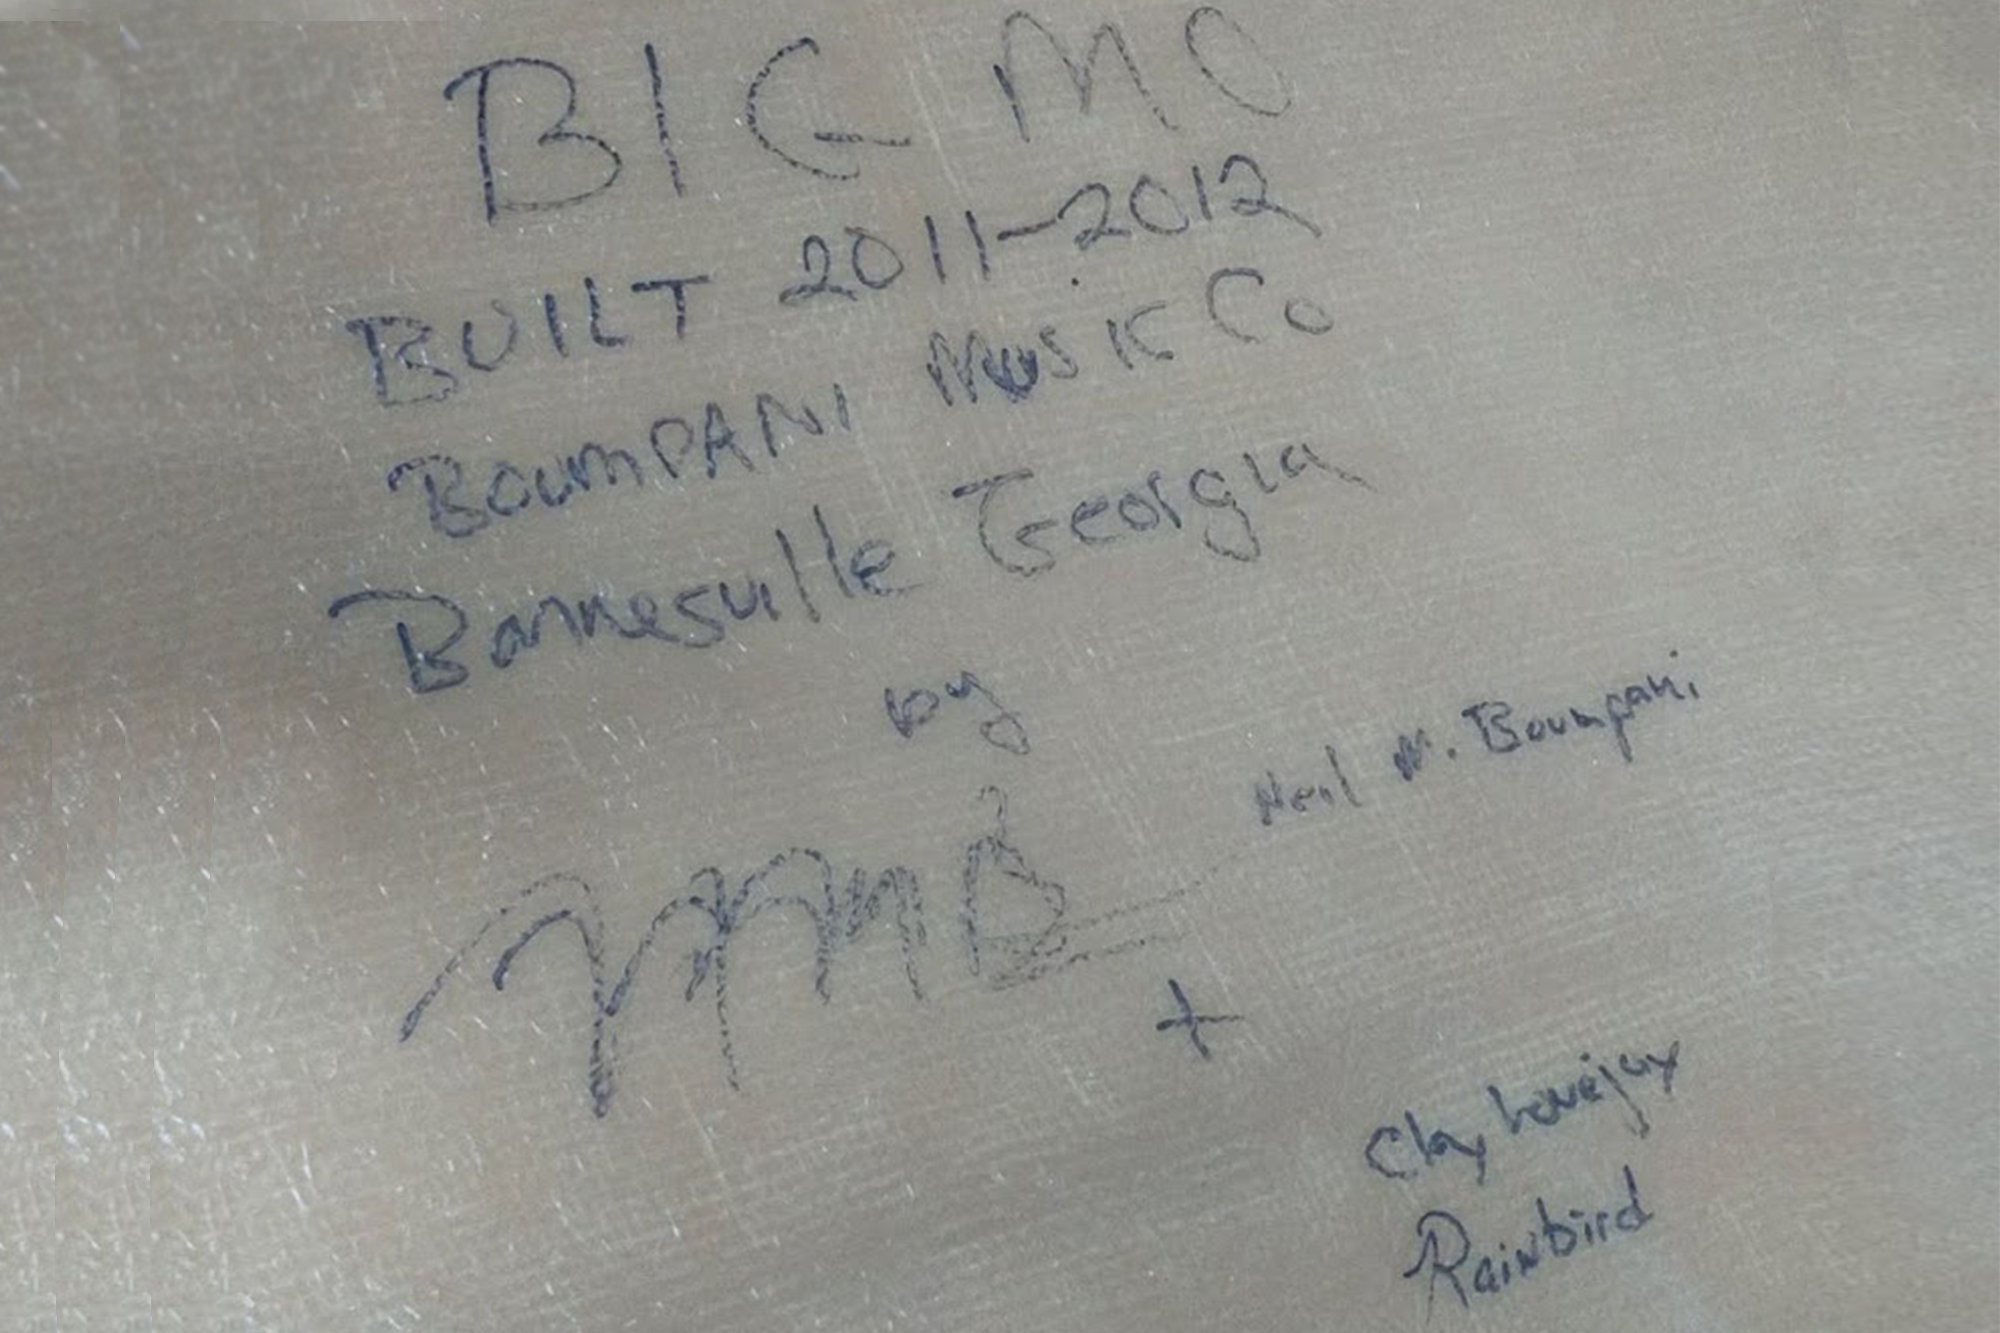 BIG MO
BUILT 2011-2012
BOUMPANI MUSIC Co
Barnesville Georgia
by
Neil M. Boumpani
NMB
+
Clay Lovejoy
Rainbird